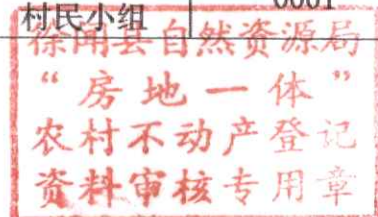 村民小组 0001
徐闻县自然资源局
“房地一体”
农村不动产登记
资料审核专用章